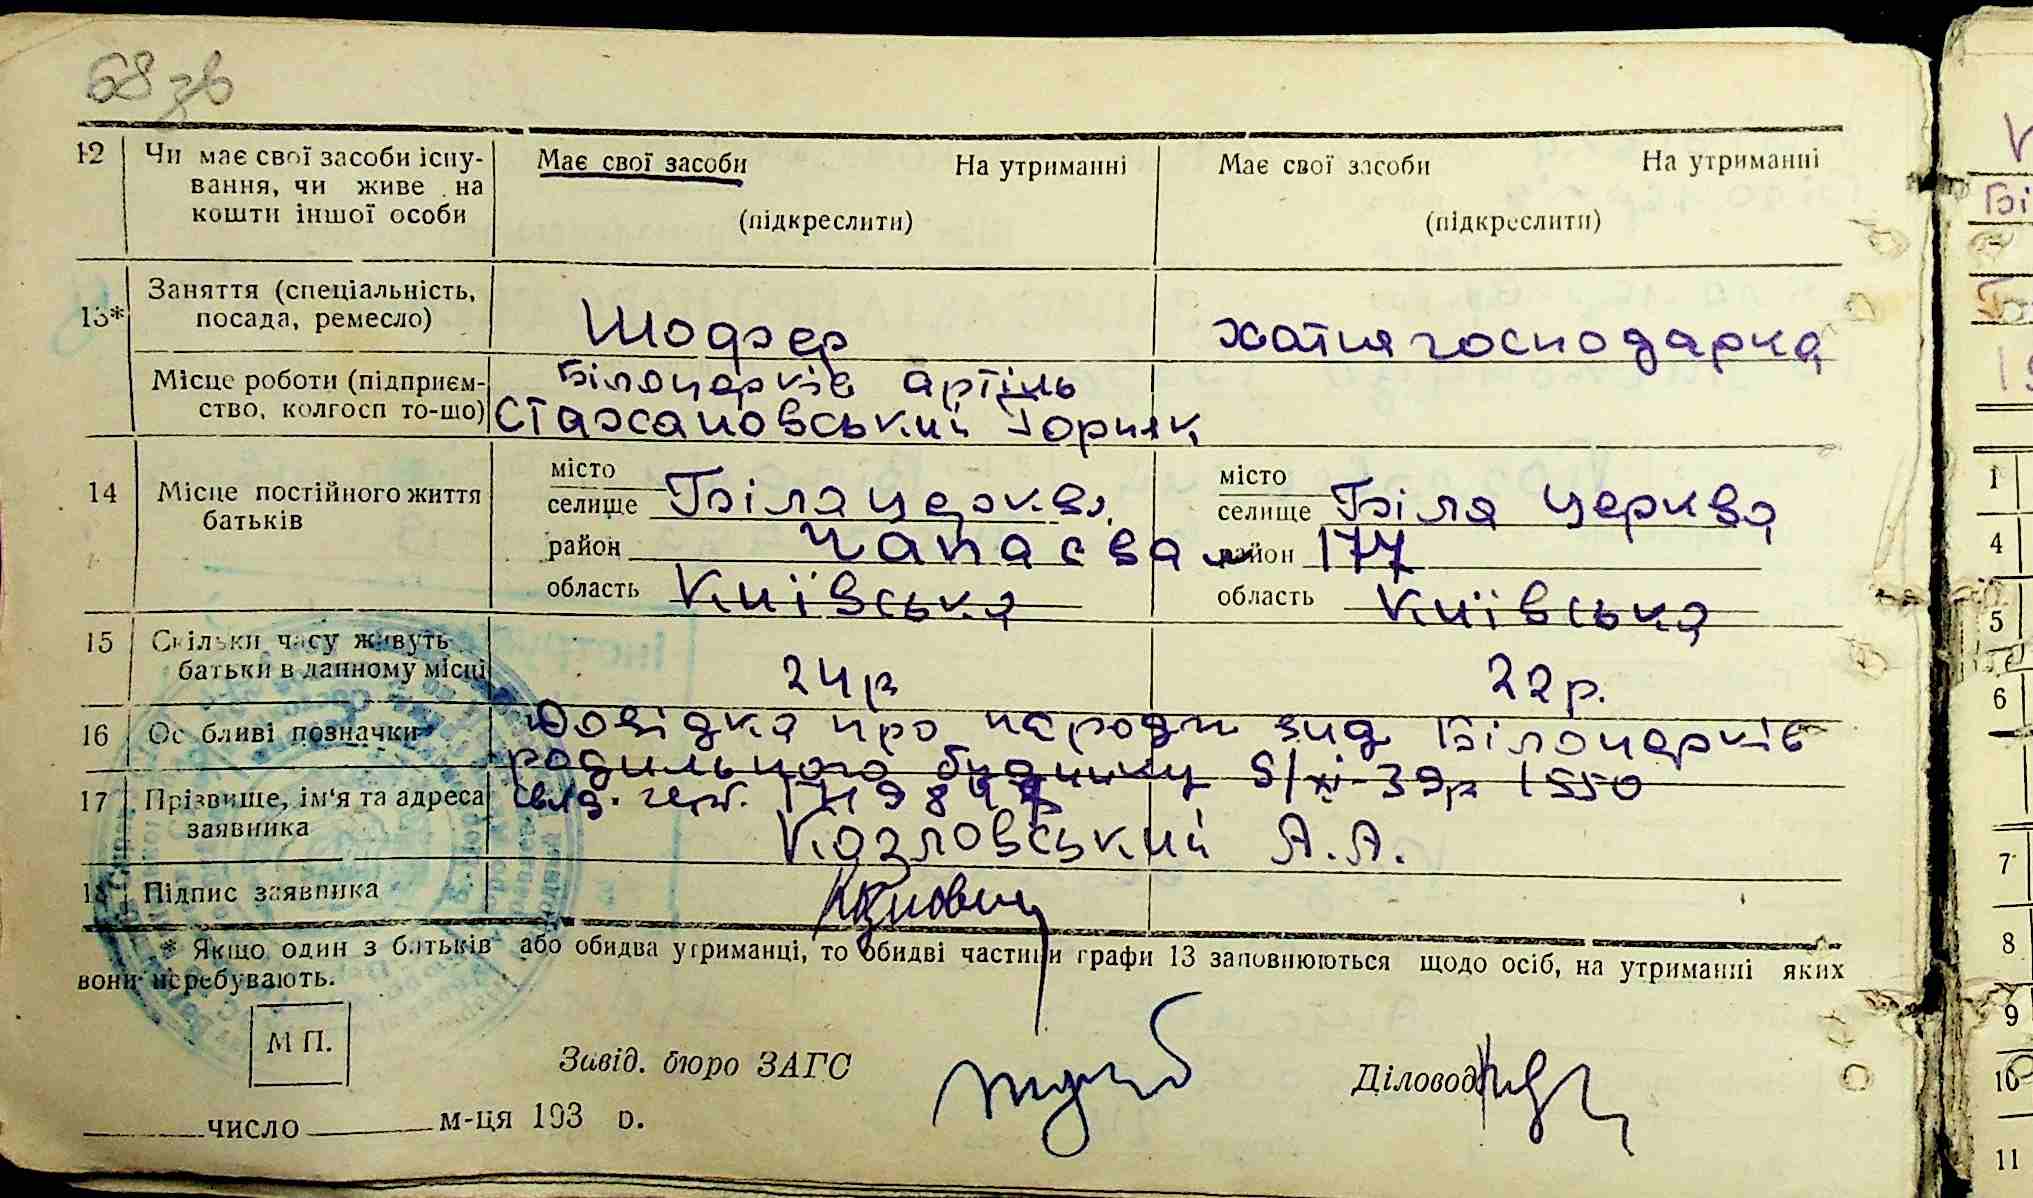 68 зв
12 Чи має свої засоби існу- Має свої засоби На утриманні Має свої засоби На утриманні
вання, чи живе на
кошти іншої особи (підкреслити) (підкреслити)
13* Заняття (спеціальність,
посада, ремесло) Шофер хатня господарка
Місце роботи (підприєм- Білоцерків артіль
ство, колгосп то-що) Стахановський Горняк
14 Місце постійного життя
батьків
місто місто
селище Біла церква селище Біла церква
район Чапаєва район 177
область Київська область Київська
15 Скільки часу живуть
батьки в данному місці 24 р 22 р.
16 Особливі позначки Довідка про народж від Білоцерків
родильного будинку 9/XI-39р 1550
17 Прізвище, ім'я та адреса
заявника Козловський А. А.
18 Підпис заявника
* Якщо один з батьків або обидва утриманці, то обидві частини графи 13 заповнюються щодо осіб, на утриманні яких
вони перебувають.
М П.
Завід. бюро ЗАГС Діловод
число м-ця 193 р.
1
4
5
6
7
8
9
10
11